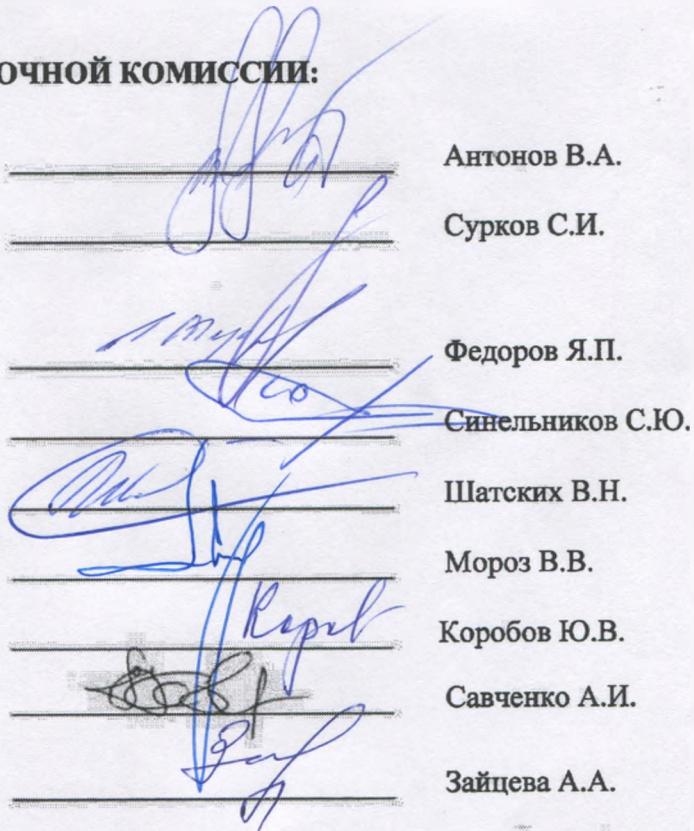 ОЧНОЙ КОМИССИИ:
Антонов В.А.
Сурков С.И.
Федоров Я.П.
Синельников С.Ю.
Шатских В.Н.
Мороз В.В.
Коробов Ю.В.
Савченко А.И.
Зайцева А.А.